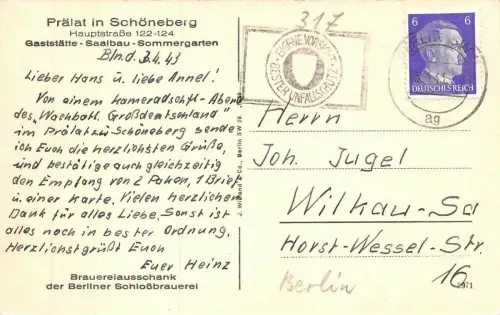 Prälat in Schöneberg
Hauptstraße 122-124
Gaststätte - Saalbau - Sommergarten
Bln.d. 3.4.43
Lieber Hans u. liebe Annel!
Von einem Kameradschft-Aben
des „Wachbatl. Großdeutschland"
im Prälat zu Schöneberg sende
ich Euch die herzlichsten Grüße,
und bestätige auch gleichzeitig
den Empfang von 2 Paken, 1 Brief
u. einer Karte. Vielen herzlichen
Dank für alles Liebe. Sonst ist
alles noch in bester Ordnung.
Herzlichst grüßt Euch
Euer Heinz
Brauereiausschank
der Berliner Schloßbrauerei
J. Wi & Co., Berlin SW
317
EIGENE VORSICHT
BESTER UNFALLSCHUTZ
6 6
DEUTSCHES REICH
ag
Herrn
Joh. Jugel
Wilkau-Sa
Horst-Wessel-Str.
16
Berlin